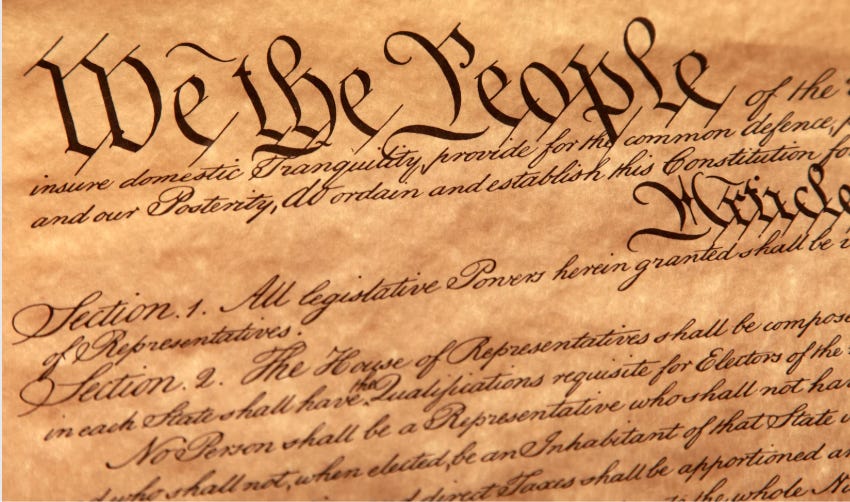 We the People of the
insure domestic Tranquility, provide for the common defence,
and our Posterity, do ordain and establish this Constitution for
Article
Section. 1. All legislative Powers herein granted shall be
of Representatives.
Section. 2. The House of Representatives shall be compose
in each State shall have the Qualifications requisite for Electors of the
No Person shall be a Representative who shall not have
who shall not, when elected, be an Inhabitant of that State
direct Taxes shall be apportioned
the whole